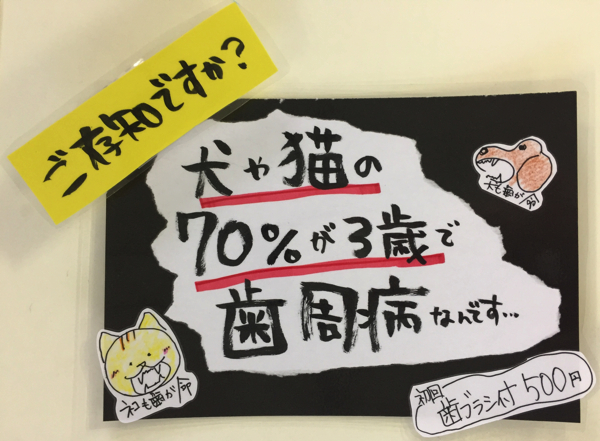 ご存知ですか?
犬や猫の
70%が3歳で
歯周病なんです…
犬も歯が命
ネコも歯が命
初回
歯ブラシ付500円